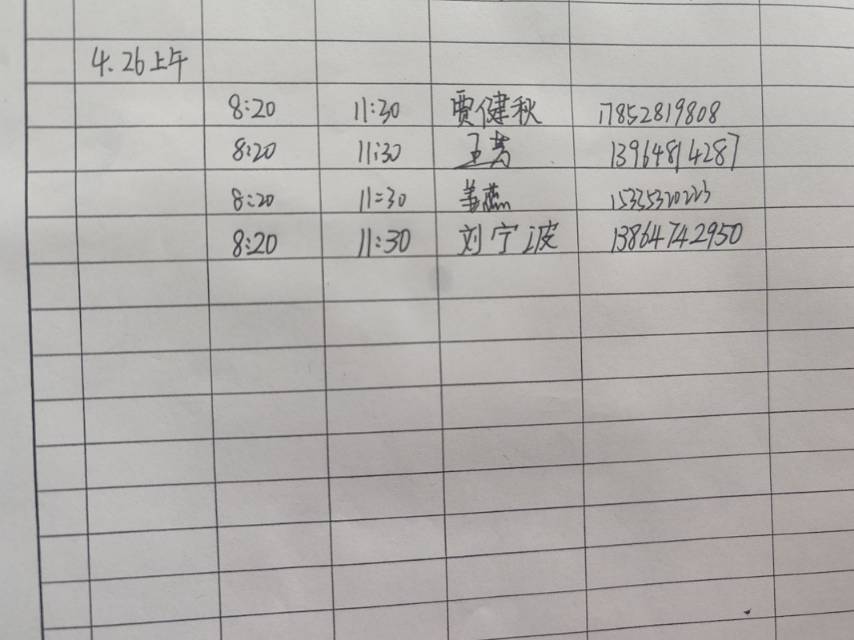 4.26上午
8:20 11:30 贾健秋 17852819808
8:20 11:30 王芳 13964814287
8:20 11:30 姜燕 15335320223
8:20 11:30 刘宁波 13864742950